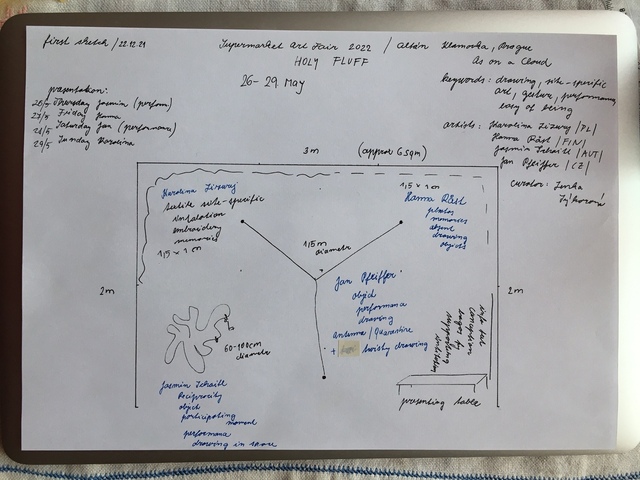 first sketch / 22.12.21
Supermarket Art Fair 2022 / Altán Klamovka, Prague
HOLY FLUFF
As on a Cloud
26-29. May
keywords: drawing, site-specific
art, gesture, performance
way of being
presentation:
26/5 Thursday Jasmin (perform)
27/5 Friday Hanna
28/5 Saturday Jan (performance)
29/5 Sunday Karolina
artists: Karolina /PL/
Hanna Råst /FIN/
Jasmin Schaitl /AUT/
Jan Pfeiffer /CZ/
curator: Lenka
Sýkorová
3m (approx 6 sqm)
Karolina
subtle site-specific
installation
embroidery
memories
1,5 × 1 m
1,5 × 1 m
Hanna Råst
photos
memories
object
drawing
objects
1,5 m
diameter
2m
2m
Jan Pfeiffer
object
performance
drawing
antenna / Quarantine
+ twisty drawing
60-100cm
diameter
Jasmin Schaitl
Reciprocity
object
participating
moment
performance
drawing in space
info text
conception
logo
supporting
presenting table